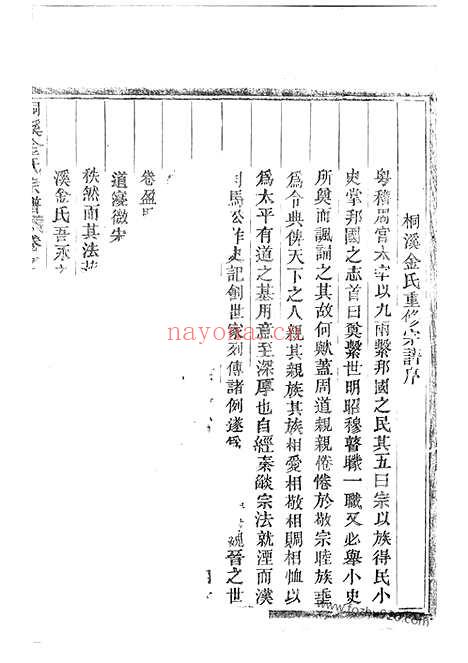 桐溪金氏重修宗譜序
粵稽周官太宰以九兩繫邦國之民其五曰宗以族得民小
史掌邦國之志首曰奠繫世明昭穆瞽矇一職又必舉小史
所奠而諷誦之其故何歟蓋周道親親惓惓於敬宗睦族垂
為令典俾天下之人親其親族其族相愛相敬相賙相恤以
為太平有道之基用意至深厚也自經秦燄宗法就湮而漢
司馬公作史記創世家列傳諸例遂
魏晉之世
卷盈
道寖微宋
秩然而其法
溪金氏吾
桐溪金氏宗譜 卷
nayona.cn
www.fozhu920.com